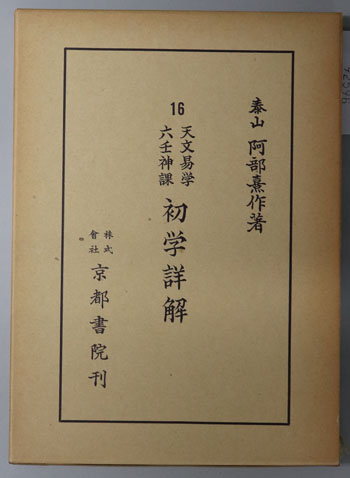 泰山 阿部熹作著
16
天文易学
六壬神課
初学詳解
株式
會社
京都書院刊